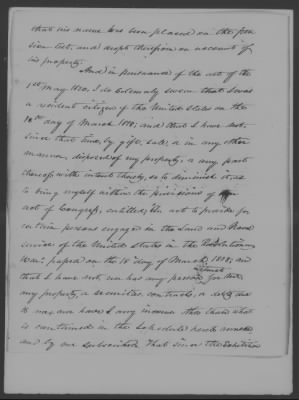 that his name has been placed on the pen
sion list, and dropt therefrom on account of
his property.
And in pursuance of the act of the
1st May 1820, I do solemnly swear that I was
a resident citizen of the United States on the
18th day of March 1818; and that I have not,
since that time, by gift, sale, or in any other
manner, disposed of my property, or any part
thereof, with intent thereby, so to diminish it, as
to bring myself within the provisions of an
act of Congress, entitled, An act to provide for
certain persons engaged in the land and Naval
service of the United States in the Revolutionary
War, passed on the 18th day of March, 1818; and
that I have not nor has any person in trust for me
any property, or securities, contracts, or debts due
to me; nor have I any income other than what
is contained in the schedule hereto annexed
and by me subscribed. That since the